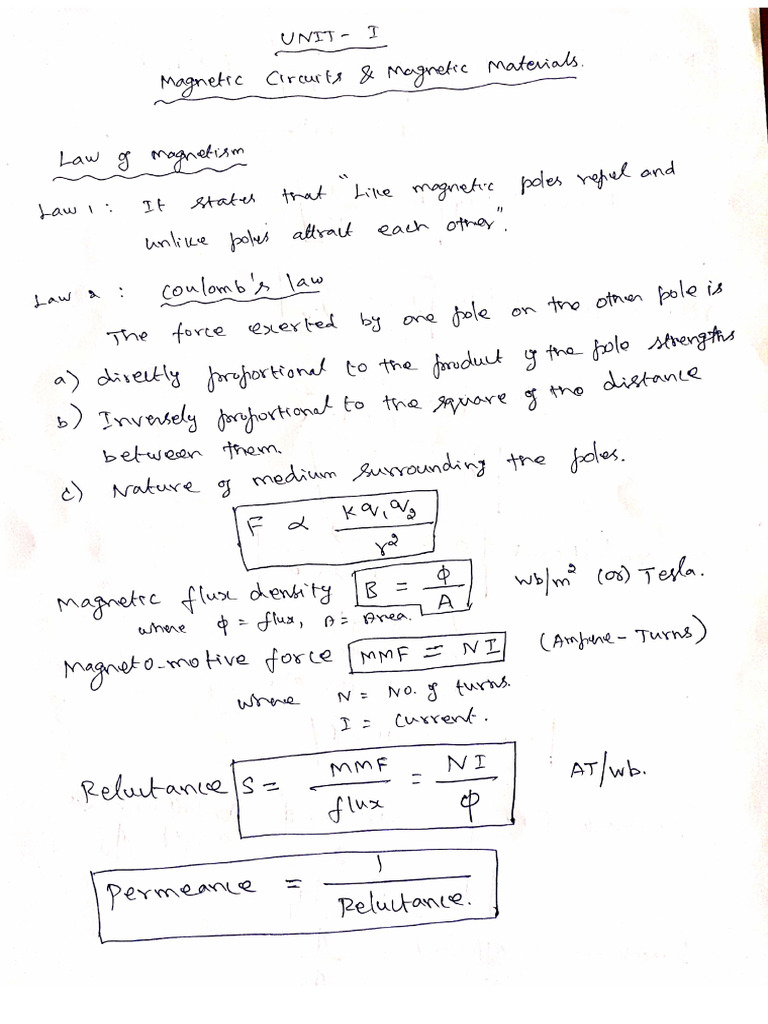 UNIT - I
Magnetic Circuits & Magnetic Materials.
Law of magnetism
Law 1 : It states that "Like magnetic poles repel and
unlike poles attract each other".
Law 2 : Coulomb's law
The force exerted by one pole on the other pole is
a) directly proportional to the product of the pole strengths
b) Inversely proportional to the square of the distance
between them.
c) Nature of medium surrounding the poles.
F ∝ K q₁ q₂ / r²
Magnetic flux density B = ϕ / A wb/m² (or) Tesla.
where ϕ = flux, A = Area.
Magneto-motive force MMF = NI (Ampere - Turns)
where N = No. of turns.
I = Current.
Reluctance S = MMF / flux = NI / ϕ AT/wb.
Permeance = 1 / Reluctance.